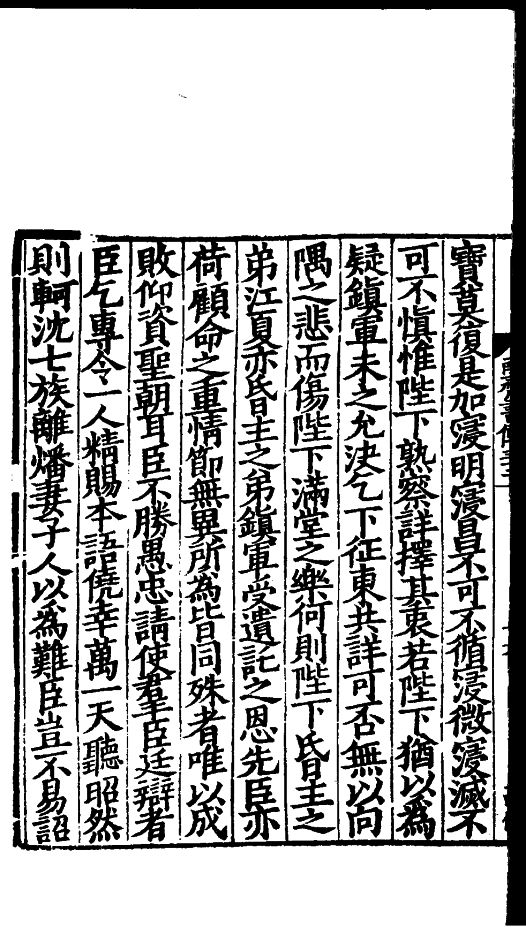 寶莫復是加寖明寖昌不可不循寖微寖滅不
可不愼惟陛下熟察詳擇其衷若陛下猶以爲
疑鎮軍未之允決乞下征東共詳可否無以向
隅之悲而傷陛下滿堂之樂何則陛下昏主之
弟江夏亦昏主之弟鎮軍受遺託之恩先臣亦
荷顧命之重情節無異所為皆同殊者唯以成
敗仰資聖朝耳臣不勝愚忠請使羣臣廷辯者
臣乞專令一人精賜本語僥幸萬一天聽昭然
則軻沈七族離燔妻子人以爲難臣豈不易詔